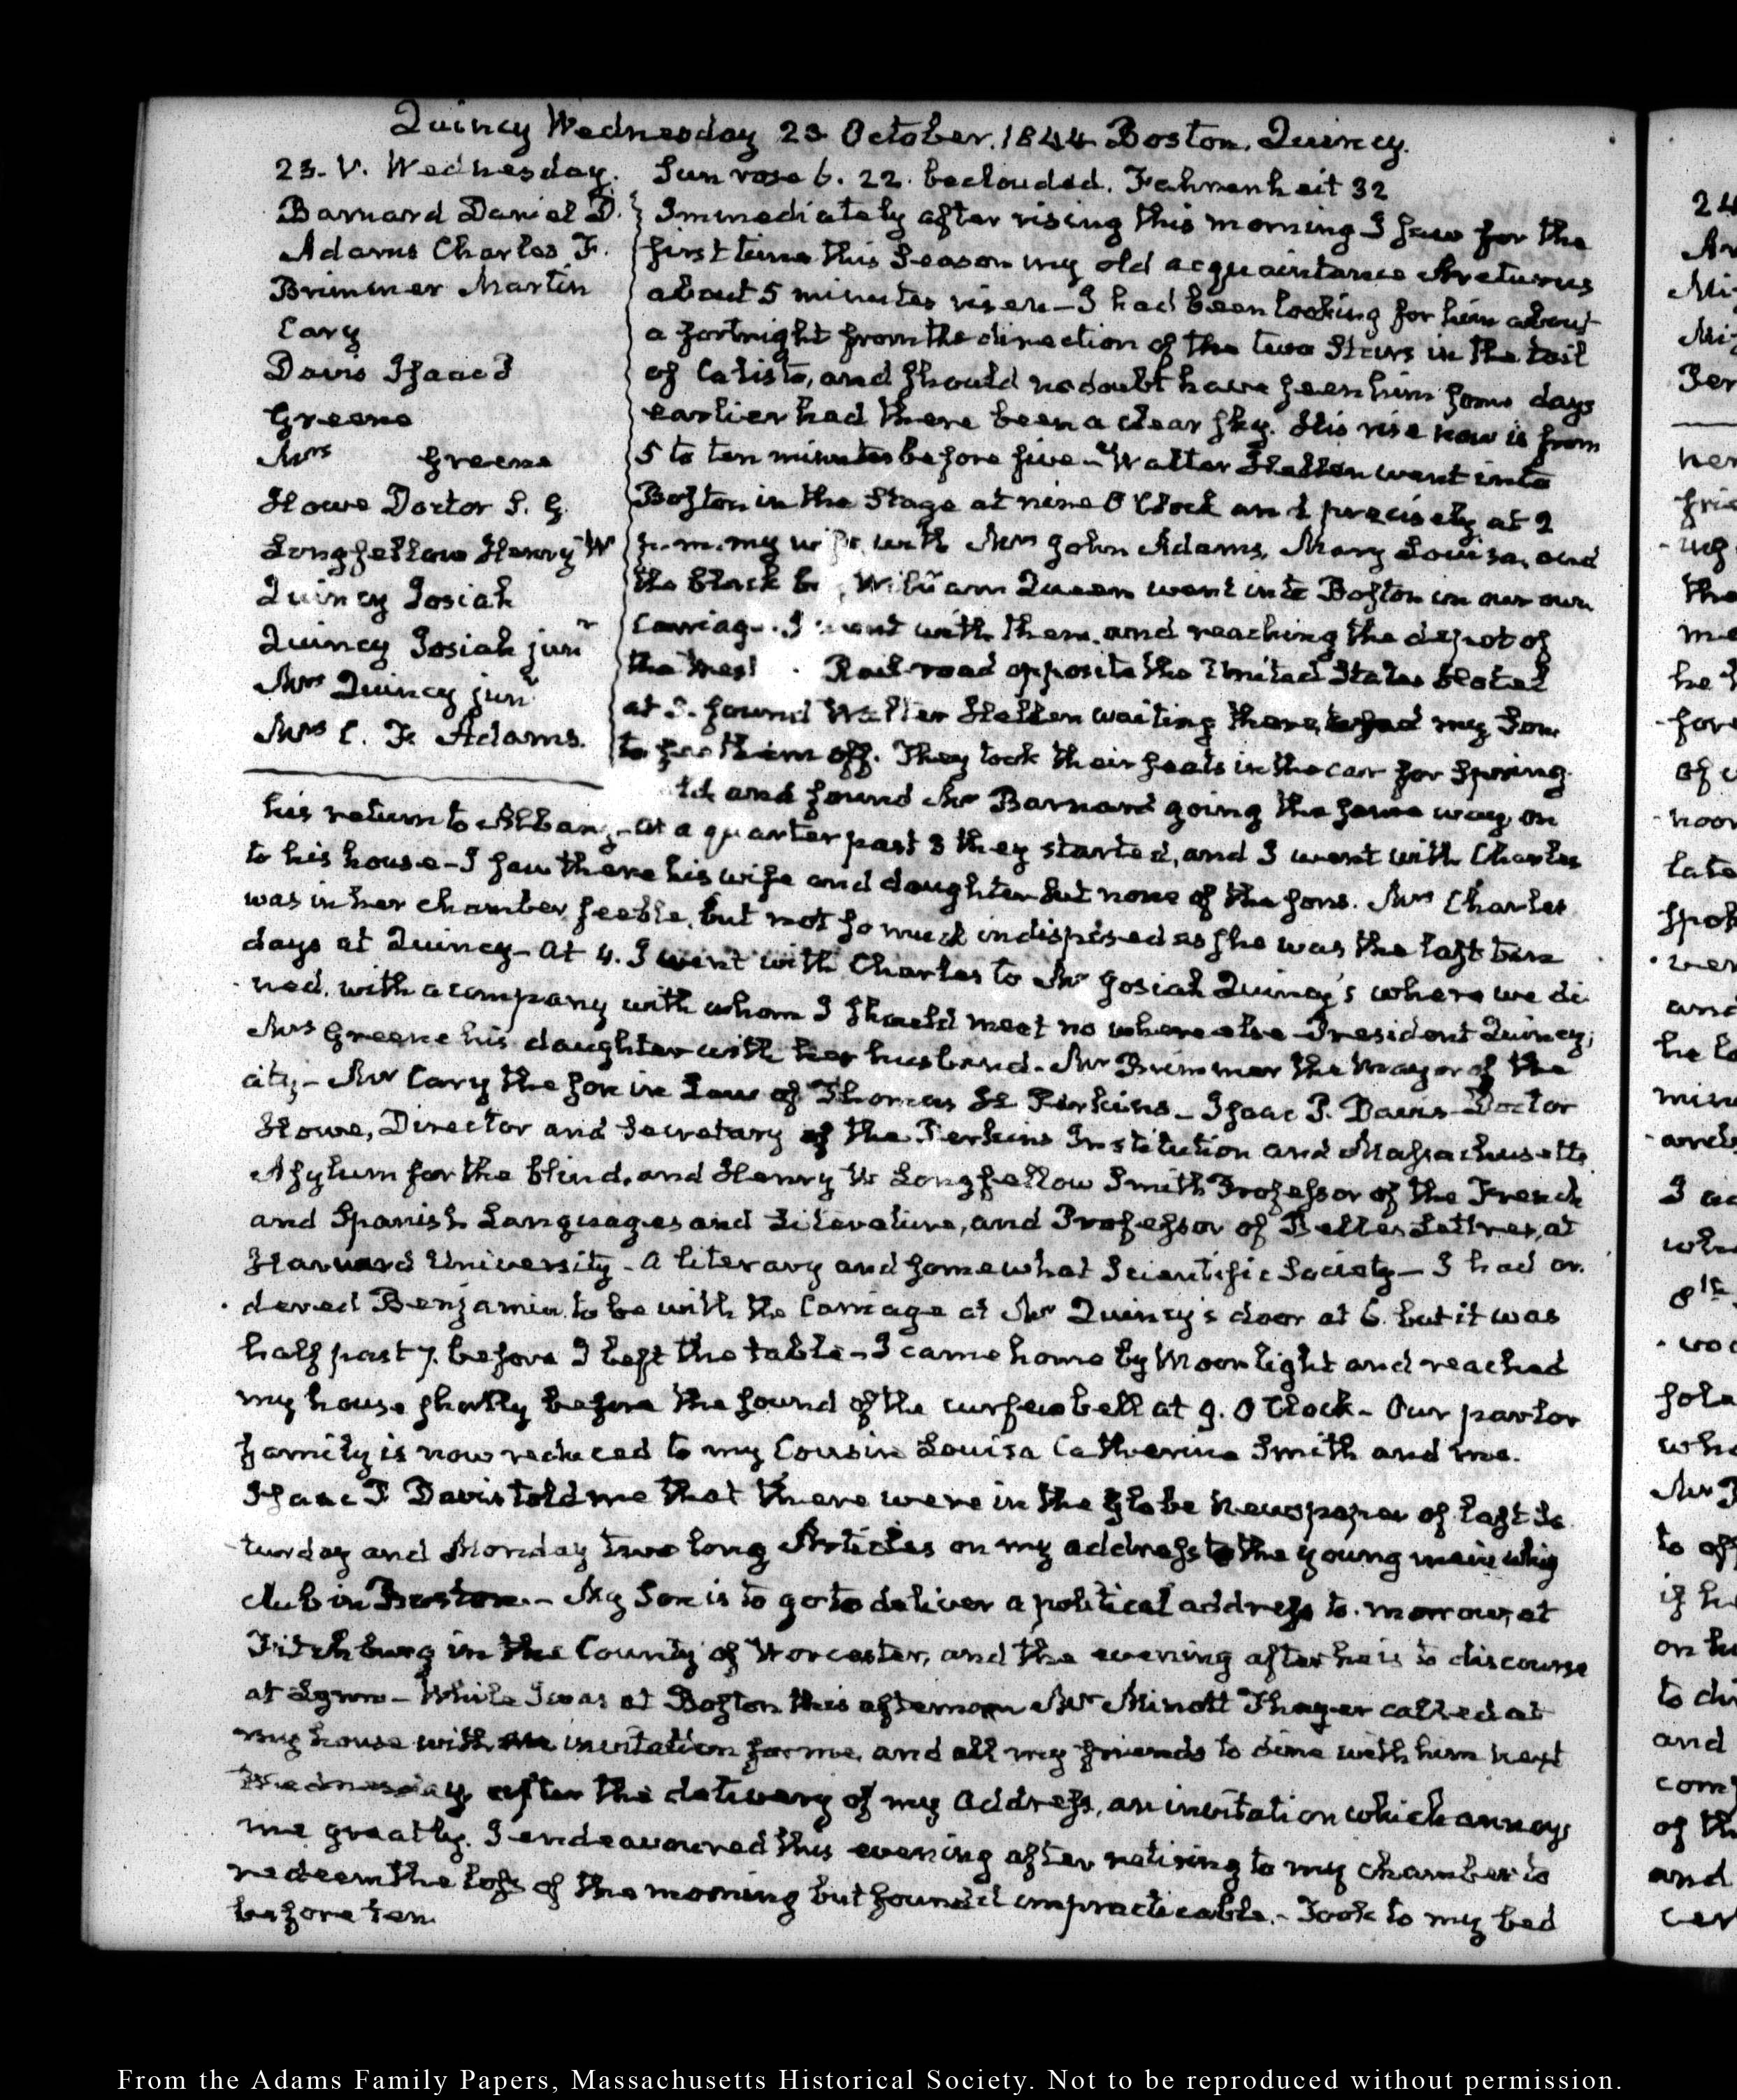 Quincy Wednesday 23 October. 1844 Boston. Quincy.
23. V. Wednesday.
Barnard Daniel D.
Adams Charles F.
Brimmer Martin
Cary
Davis Isaac P
Greene
Mrs Greene
Howe Doctor S. G.
Longfellow Henry W
Quincy Josiah
Quincy Josiah junr
Mrs Quincy junr
Mrs C. F. Adams.
Sun rose 6. 22. beclouded. Fahrenheit 32
Immediately after rising this morning I saw for the
first time this Season my old acquaintance Arcturus
about 5 minutes risen — I had been looking for him about
a fortnight from the direction of the two Stars in the tail
of Calisto, and should no doubt have seen him some days
earlier had there been a clear sky. His rise now is from
5 to ten minutes before five — Walter Hellen went into
Boston in the Stage at nine O'Clock and precisely at 2
my wife, with Mrs John Adams, Mary Louisa, and
the black William Queen went into Boston in our own
Carriage. I went with them, and reaching the depot of
the Rail-road opposite the United States Hotel
at 3. found Walter Hellen waiting there and my Son
to see them off. They took their seats in the car for Spring
and found Mr Barnard going the same way, on
his return to Albany — at a quarter past 3 they started, and I went with Charles
to his house — I saw there his wife and daughter but none of the sons. Mrs Charles
was in her chamber, feeble, but not so much indisposed as she was the last ten
days at Quincy — At 4. I went with Charles to Mr Josiah Quincy's where we di
ned, with a company with whom I should meet no where else — President Quincy,
Mrs Greene his daughter with her husband — Mr Brimmer the Mayor of the
city — Mr Cary the son in Law of Thomas H. Perkins — Isaac P. Davis — Doctor
Howe, Director and Secretary of the Perkins Institution and Massachusetts
Asylum for the blind, and Henry W Longfellow Smith Professor of the French
and Spanish Languages and Literature, and Professor of Belles Lettres, at
Harvard University — A literary and somewhat Scientific Society — I had or
dered Benjamin to be with the Carriage at Mr Quincy's door at 6. but it was
half past 7. before I left the table — I came home by Moonlight and reached
my house shortly before the sound of the curfew bell at 9. O'Clock — Our parlor
family is now reduced to my Cousin Louisa Catherine Smith and me.
Isaac P Davis told me that there were in the Globe Newspaper of last Sa
turday and Monday two long Articles on my address to the young men's whig
club in Boston. — My Son is to go to deliver a political address to-morrow, at
Fitchburg in the County of Worcester, and the evening after he is to discourse
at Lynn — While I was at Boston this afternoon Mr Minott Thayer called at
my house with an invitation for me, and all my friends to dine with him next
Wednesday, after the delivery of my Address, an invitation which annoys
me greatly. I endeavoured this evening after retiring to my chamber to
redeem the loss of the morning but found it impracticable. — Took to my bed
before ten.
24
From the Adams Family Papers, Massachusetts Historical Society. Not to be reproduced without permission.